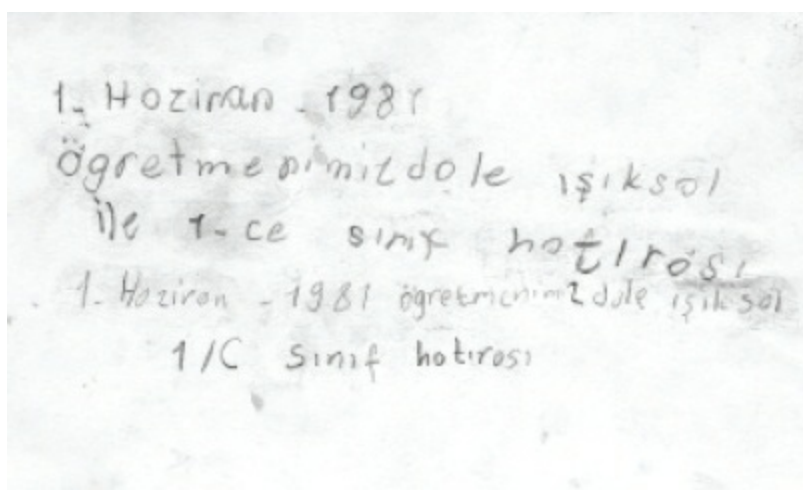 1- Haziran - 1981
öğretmenimiz dole ışıksol
ile 1-ce sınıf hatırası
1- Haziran - 1981 öğretmenimiz dole ışıksol
1/C Sınıf hatırası